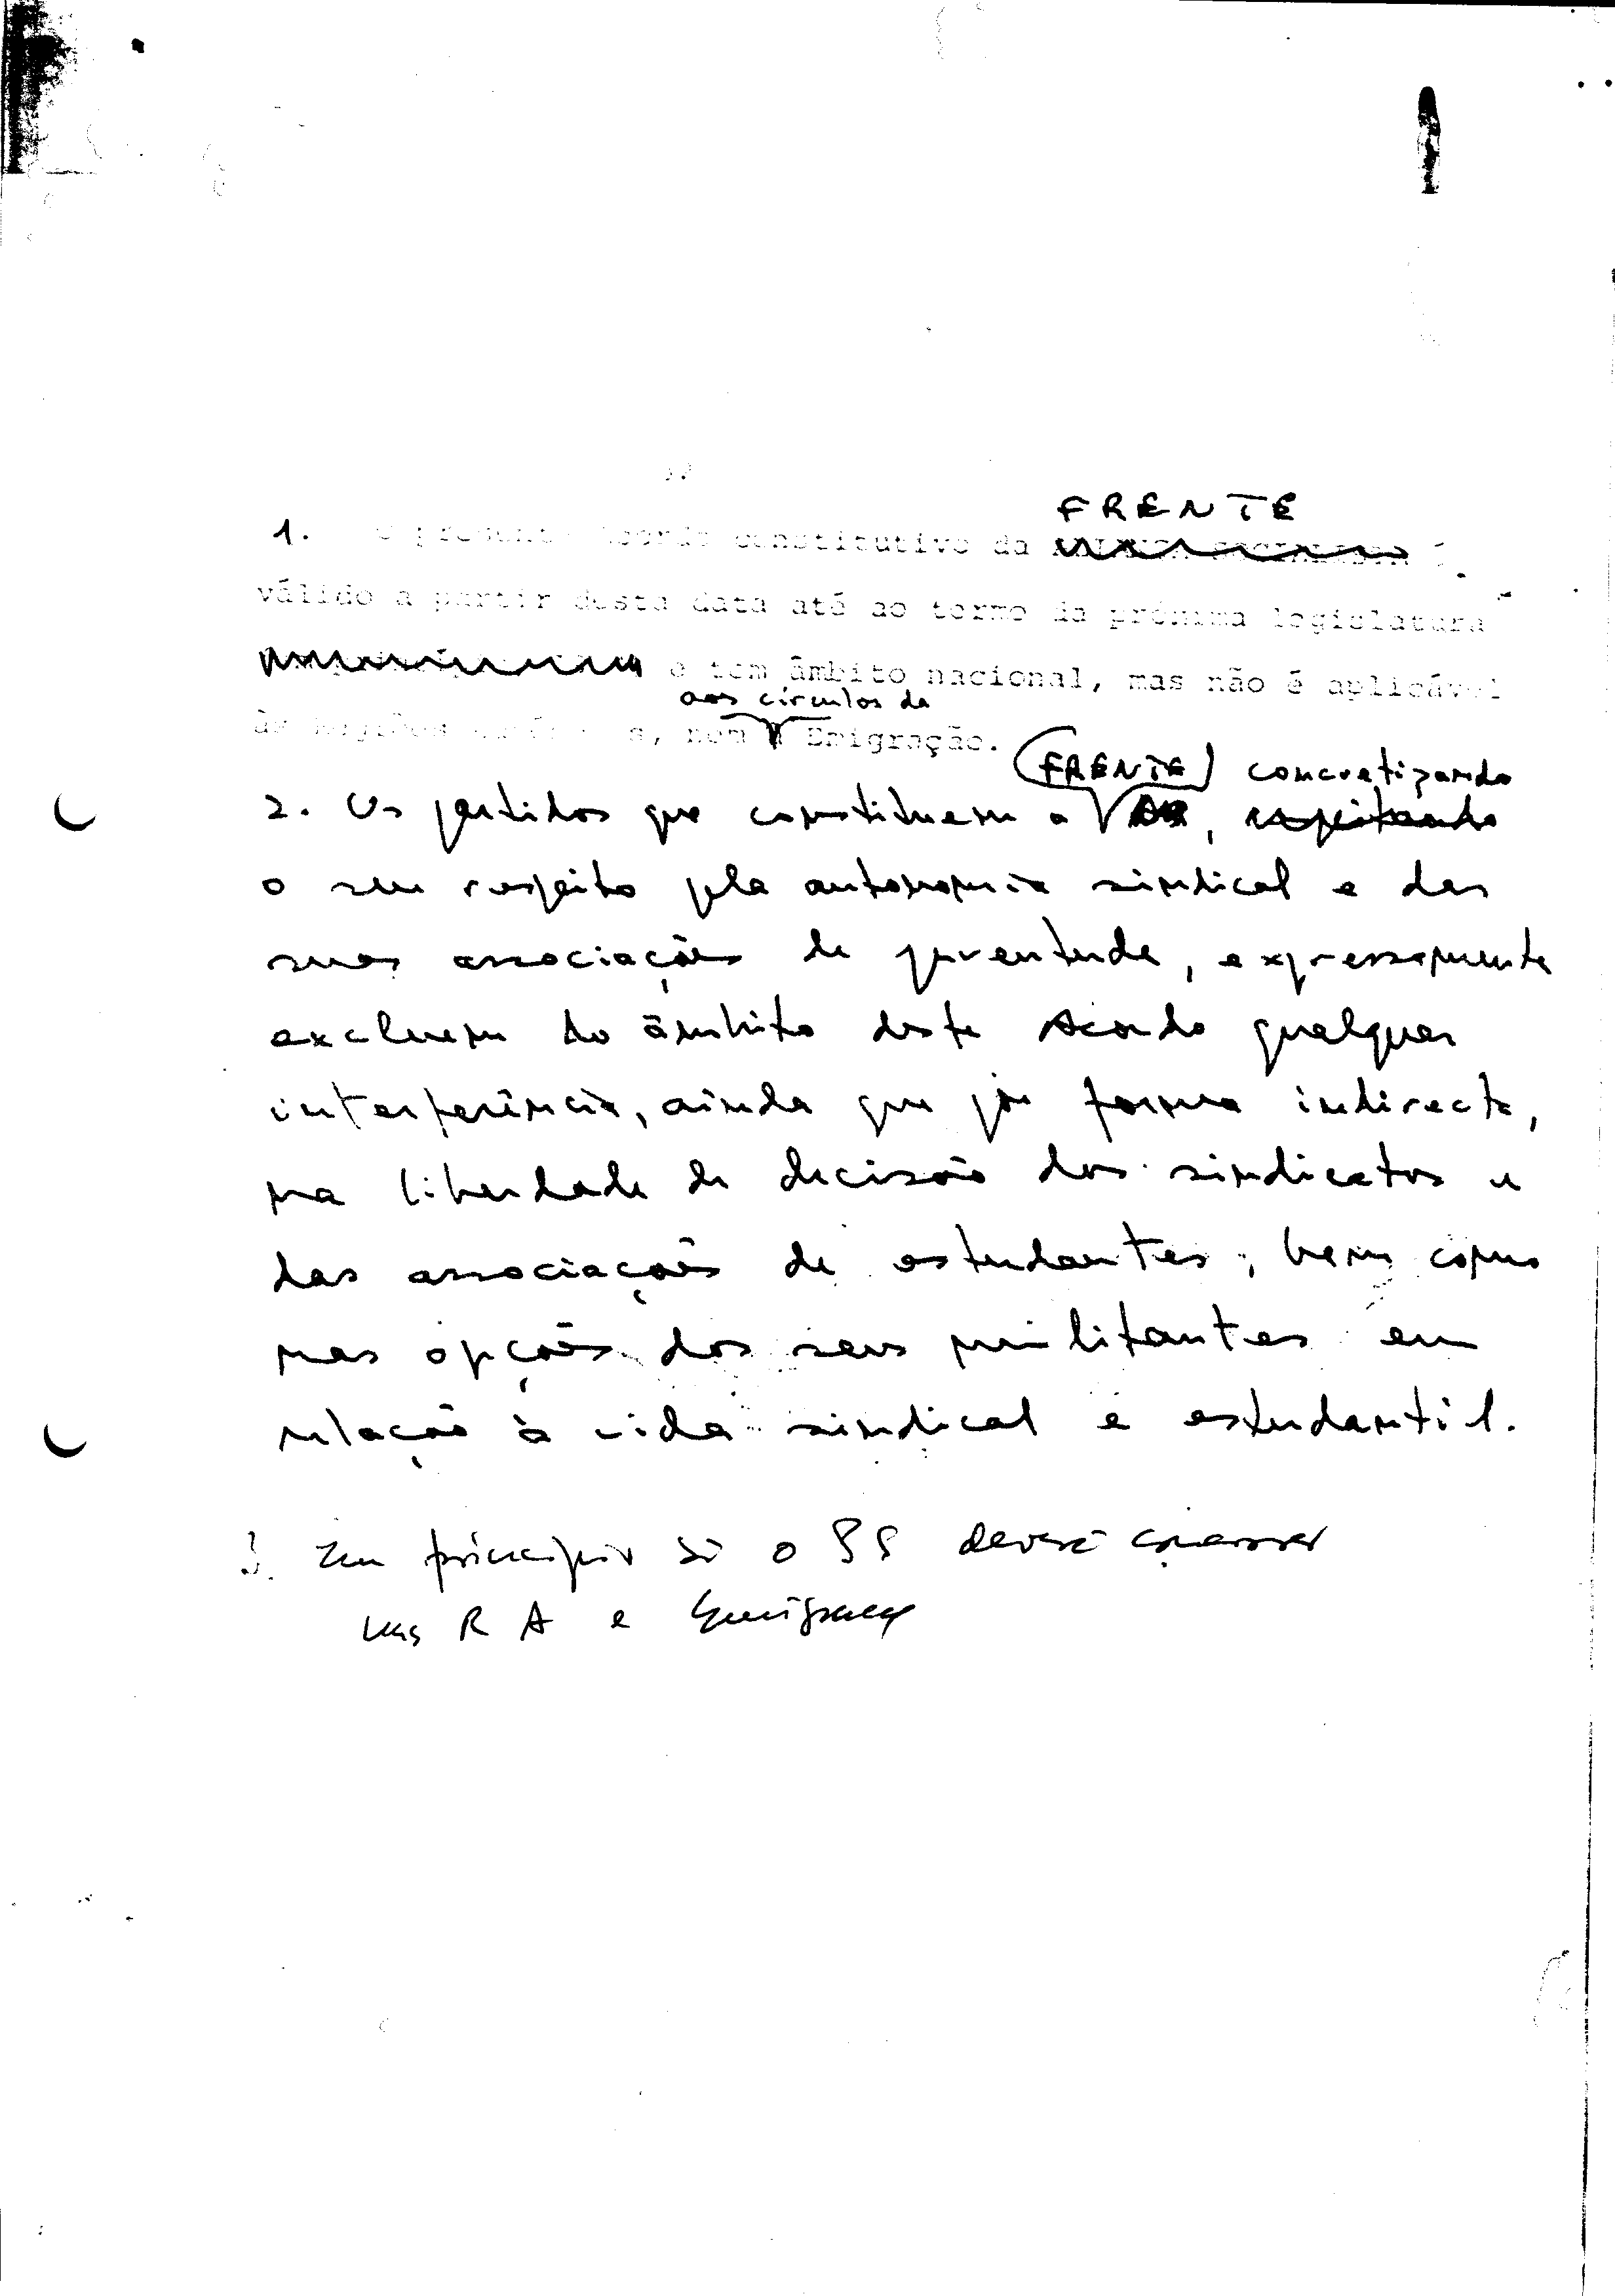 FRENTE
1. O presente Acordo constitutivo da ALIANÇA SOCIALISTA é
válido a partir desta data até ao termo da próxima legislatura
e tem âmbito nacional, mas não é aplicável
aos círculos da
às Regiões Autónomas, nem à Emigração.
FRENTE concretizando
2. Os partidos que constituem a AS, respeitando
o seu respeito pela autonomia sindical e das
suas associações de juventude, expressamente
excluem do âmbito deste Acordo qualquer
interferência, ainda que por forma indirecta,
na liberdade de decisão dos sindicatos e
das associações de estudantes, bem como
nas opções dos seus militantes em
relação à vida sindical e estudantil.
3. Em princípio só o PS deverá
nas R A e Emigração